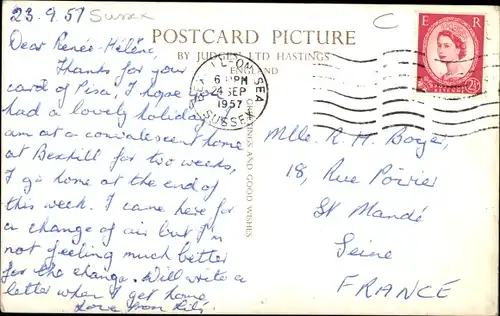 23.9.57 Sussex
C
POSTCARD PICTURE
BY JUDGES' LTD HASTINGS
ENGLAND
GREETINGS AND GOOD WISHES
E R
2½
ON SEA
6 PM
24 SEP
1957
SUSSEX
Dear Renée-Hélène
Thanks for your
card of Pisa. I hope you
had a lovely holiday. I
am at a convalescent home
at Bexhill for two weeks,
I go home at the end of
this week. I came here for
a change of air but I'm
not feeling much better
for the change. Will write a
letter when I get home.
Love from
Mlle. R. H. Boyer,
18, Rue Poirier
St Mandé
Seine
FRANCE